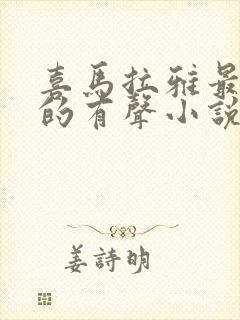 喜馬拉雅最
的有聲小說
姜詩明